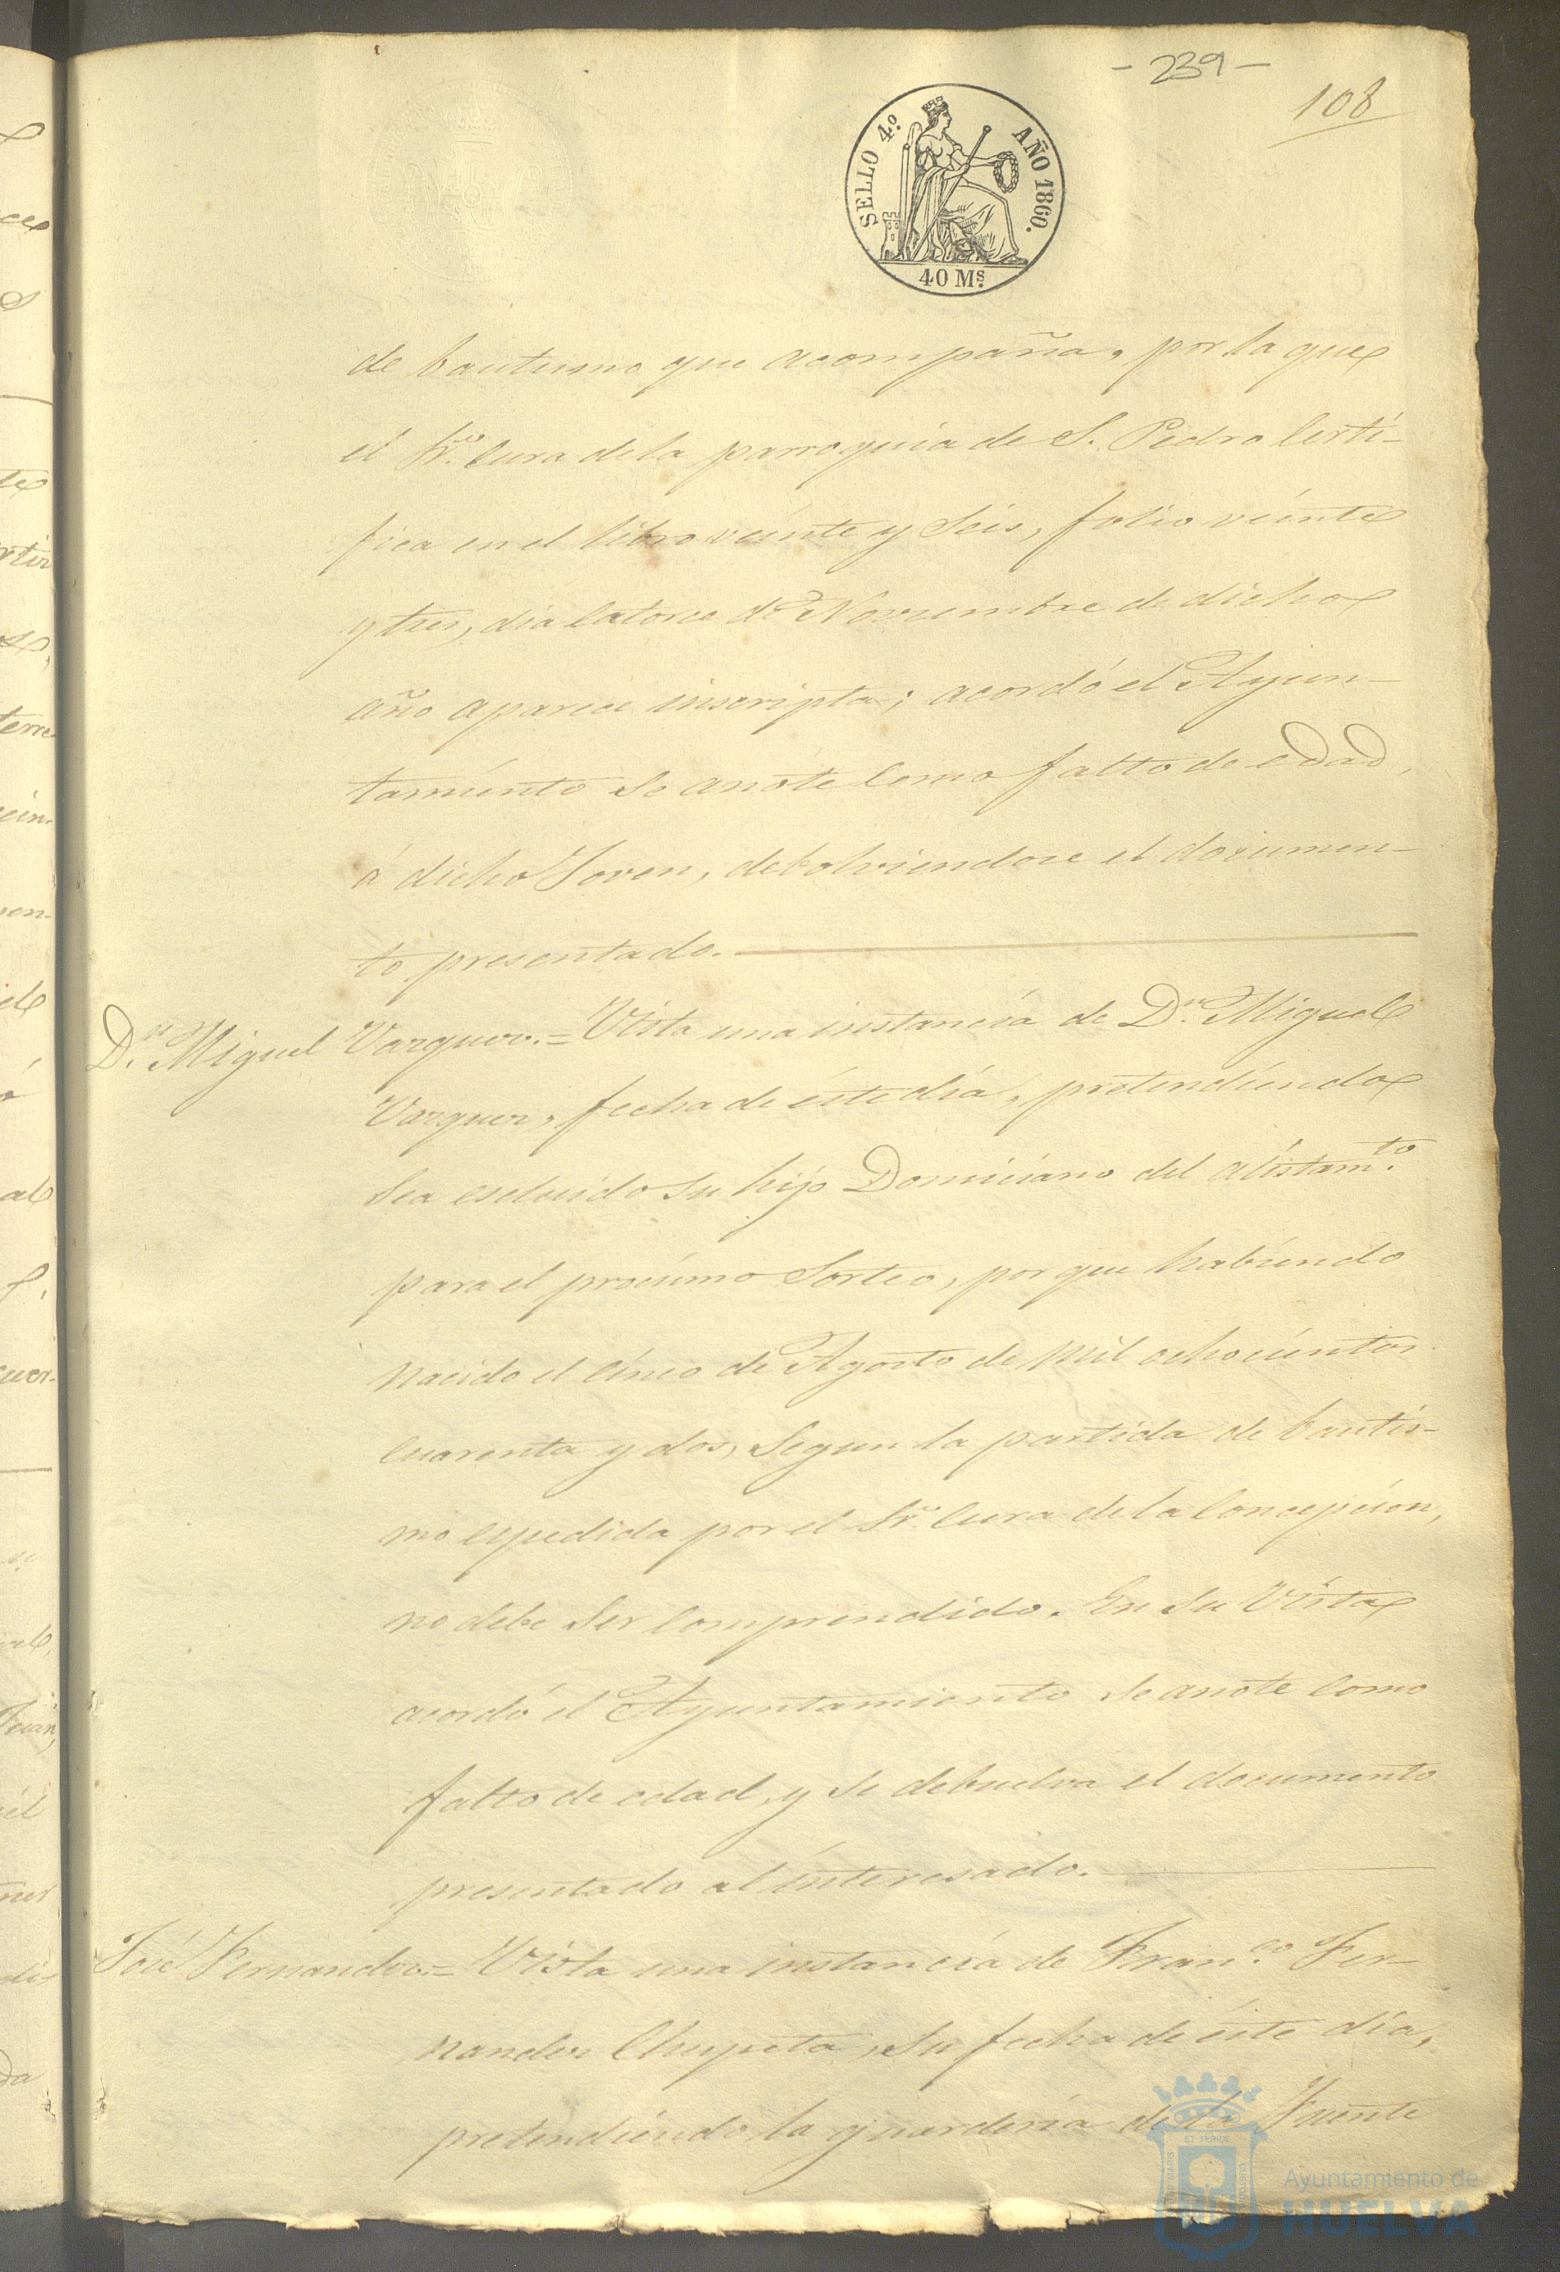 - 239 -
108
SELLO 4º. AÑO 1860.
40 Ms.
de bautismo que acompaña, por la que
el Sr. Cura de la parroquia de S. Pedro Certi-
fica en el libro veinte y seis, folio veinte
y tres, dia Catorce de Noviembre de dicho
año aparece inscripta; acordó el Ayun-
tamiento se anote como falto de edad,
á dicho Joven, debolviendose el documen-
to presentado.
Dn. Miguel Vazquez.= Vista una instancia de Dn. Miguel
Vazquez, fecha de éste día, pretendiendo
sea escluido su hijo Domiciano del alistamto.
para el procsimo Sorteo, por que habiendo
nacido el Cinco de Agosto de mil ochocientos
cuarenta y dos, Segun la partida de bautis-
mo espedida por el Sr. Cura de la Concepcion,
no debe ser Comprendido. En su Vista
acordó el Ayuntamiento se anote como
falto de edad, y se debuelva el documento
presentado al interesado.
José Fernandez.= Vista una instancia de Franco. Fer-
nandez Chupeta, su fecha de éste día,
pretendiendo la guarderia de la Fuente
Ayuntamiento de
HUELVA